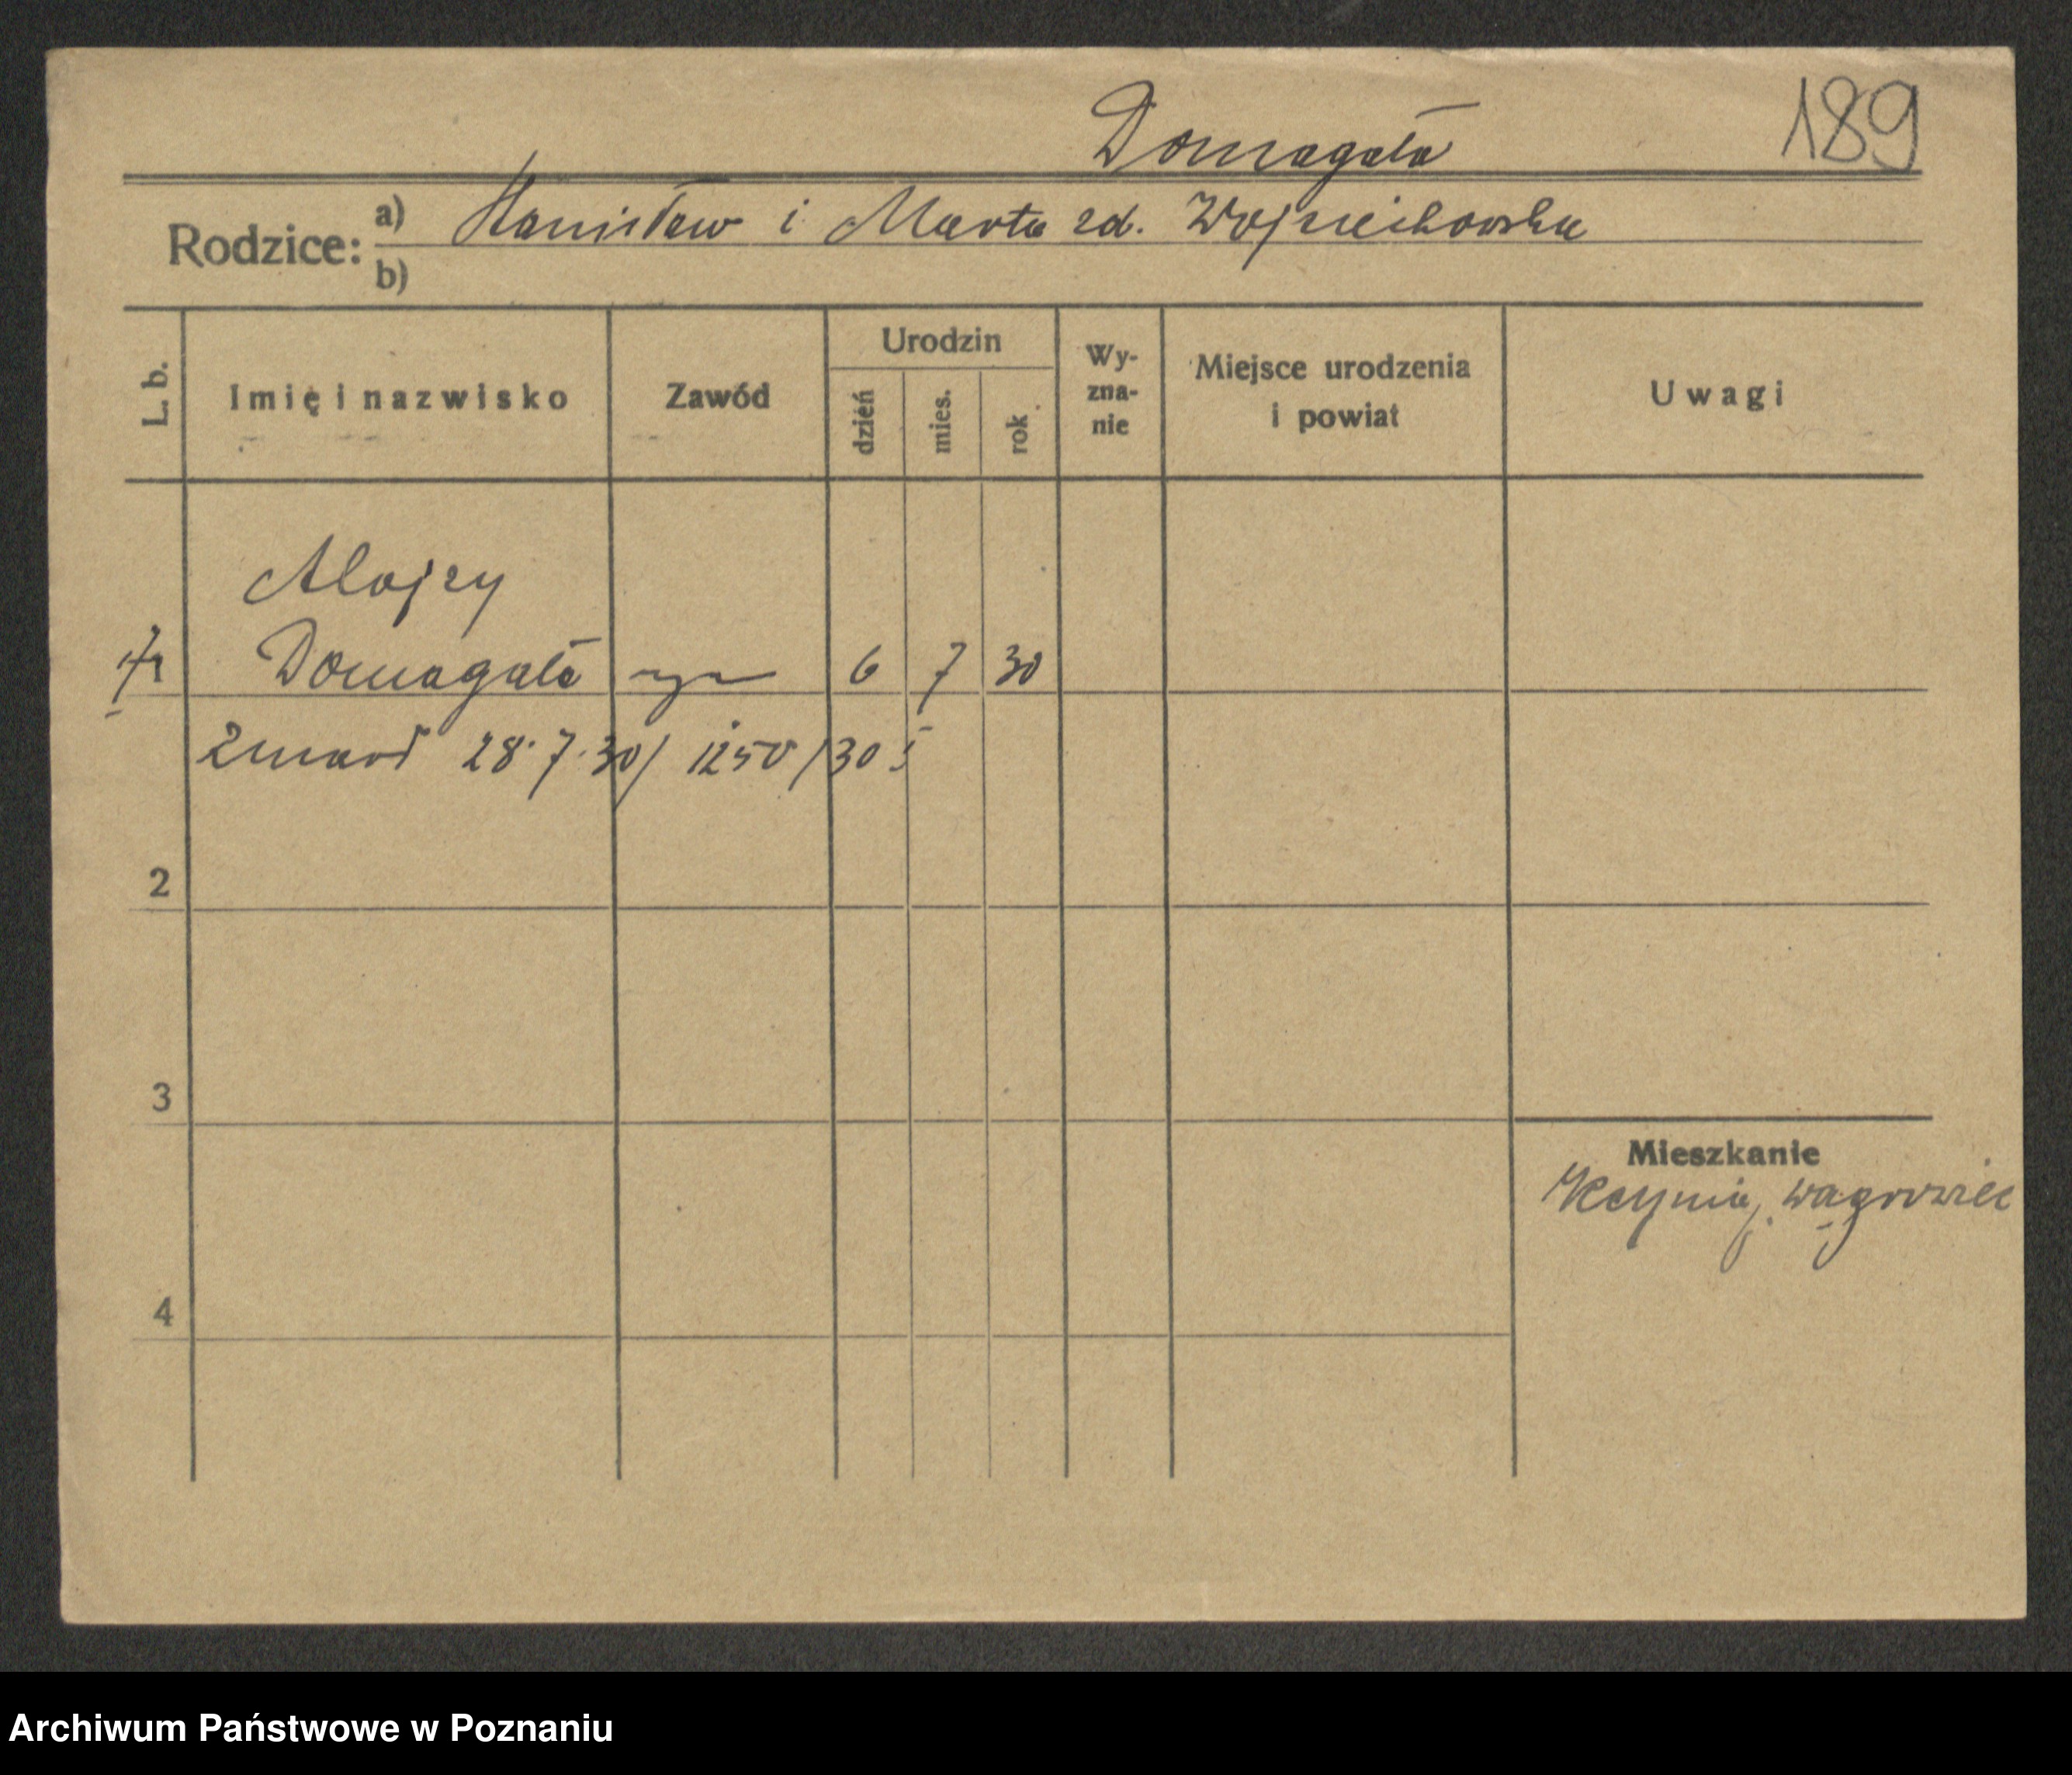 189
Domagała
Rodzice: a) Stanisław i Marta zd. Wojciechowska
b)
L. b.
Imię i nazwisko
Zawód
Urodzin
dzień
mies.
rok
Wy-
zna-
nie
Miejsce urodzenia
i powiat
Uwagi
Alojzy
1 Domagała syn 6 7 30
zmarł 28.7.30/ 1250/30
2
3
Mieszkanie
Kcynia, Wągrowiec
4
Archiwum Państwowe w Poznaniu